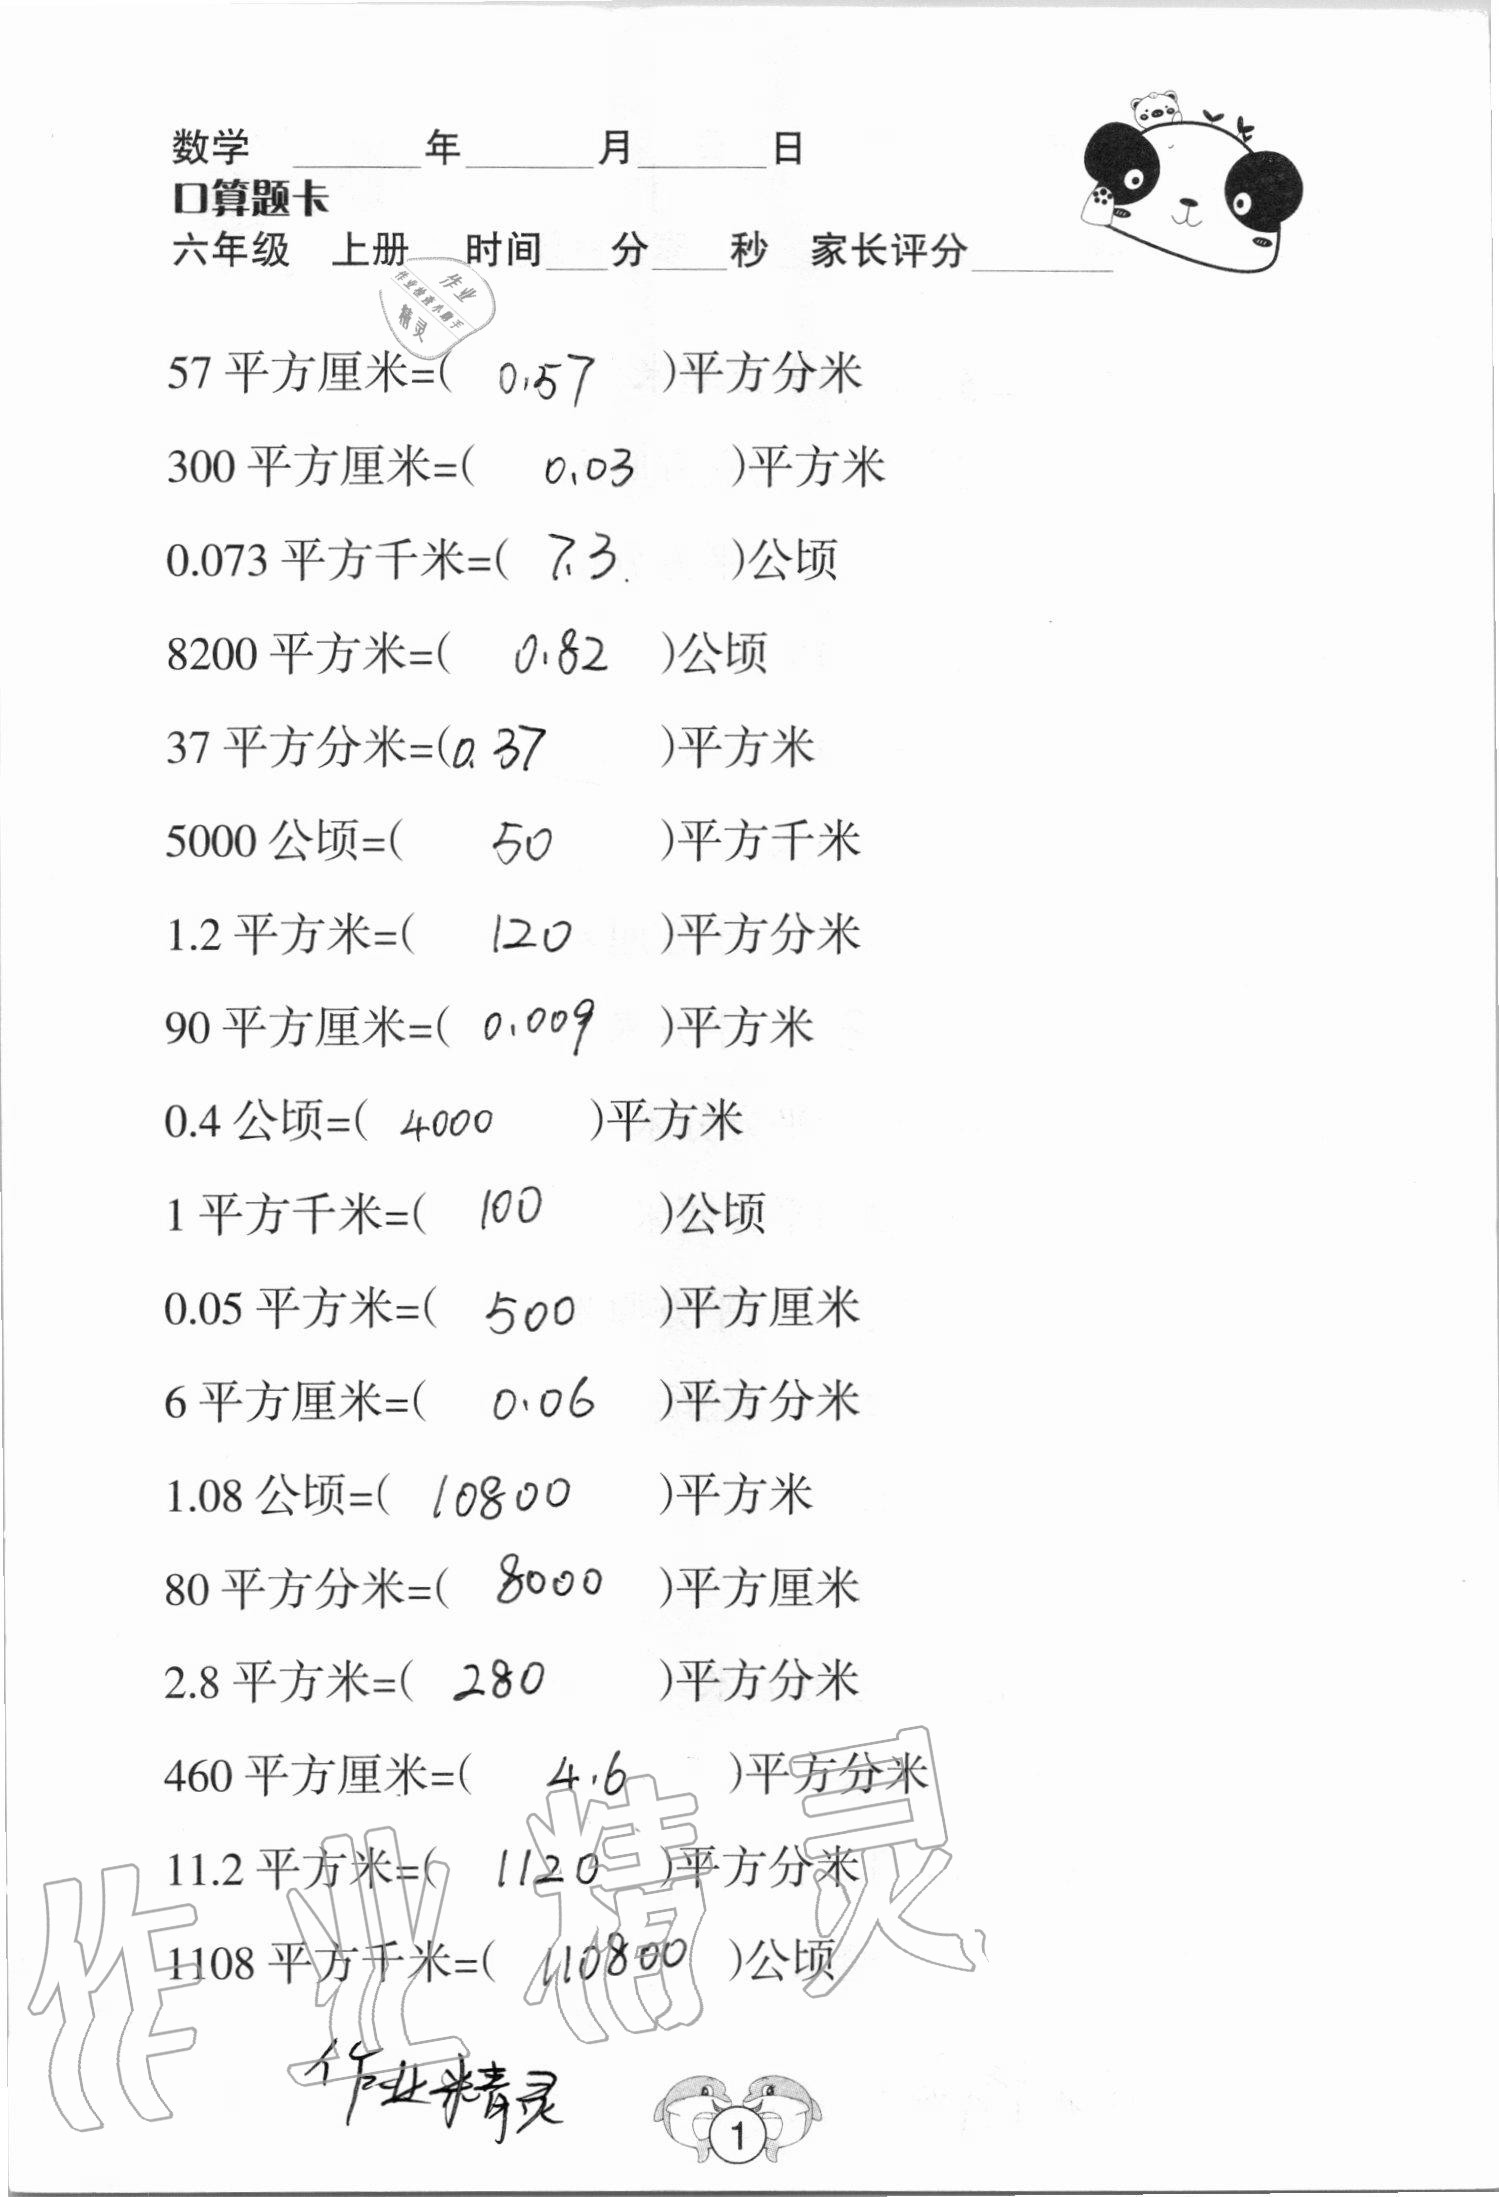 数学 ______年______月______日
口算题卡
六年级 上册 时间___分____秒 家长评分_______
作业
作业检查小助手
精灵
57平方厘米=( 0.57 )平方分米
300平方厘米=( 0.03 )平方米
0.073平方千米=( 7.3 )公顷
8200平方米=( 0.82 )公顷
37平方分米=(0.37 )平方米
5000公顷=( 50 )平方千米
1.2平方米=( 120 )平方分米
90平方厘米=( 0.009 )平方米
0.4公顷=( 4000 )平方米
1平方千米=( 100 )公顷
0.05平方米=( 500 )平方厘米
6平方厘米=( 0.06 )平方分米
1.08公顷=( 10800 )平方米
80平方分米=( 8000 )平方厘米
2.8平方米=( 280 )平方分米
460平方厘米=( 4.6 )平方分米
11.2平方米=( 1120 )平方分米
1108平方千米=( 110800 )公顷
作业精灵
作业精灵
1